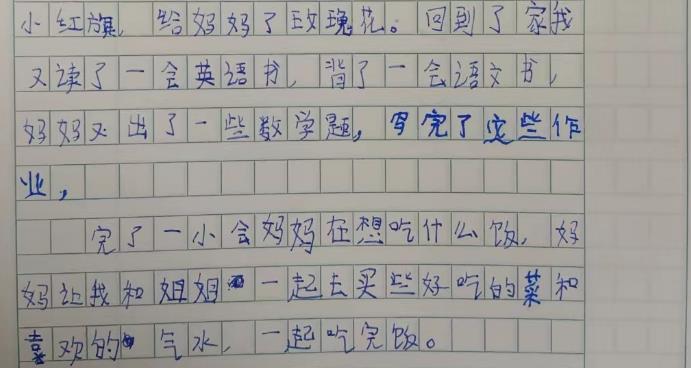 小红旗,给妈妈了玫瑰花。回到了家我
又读了一会英语书,背了一会语文书,
妈妈又出了一些数学题,写完了这些作
业,
完了一小会妈妈在想吃什么饭,妈
妈让我和姐姐一起去买些好吃的菜和
喜欢的气水,一起吃完饭。